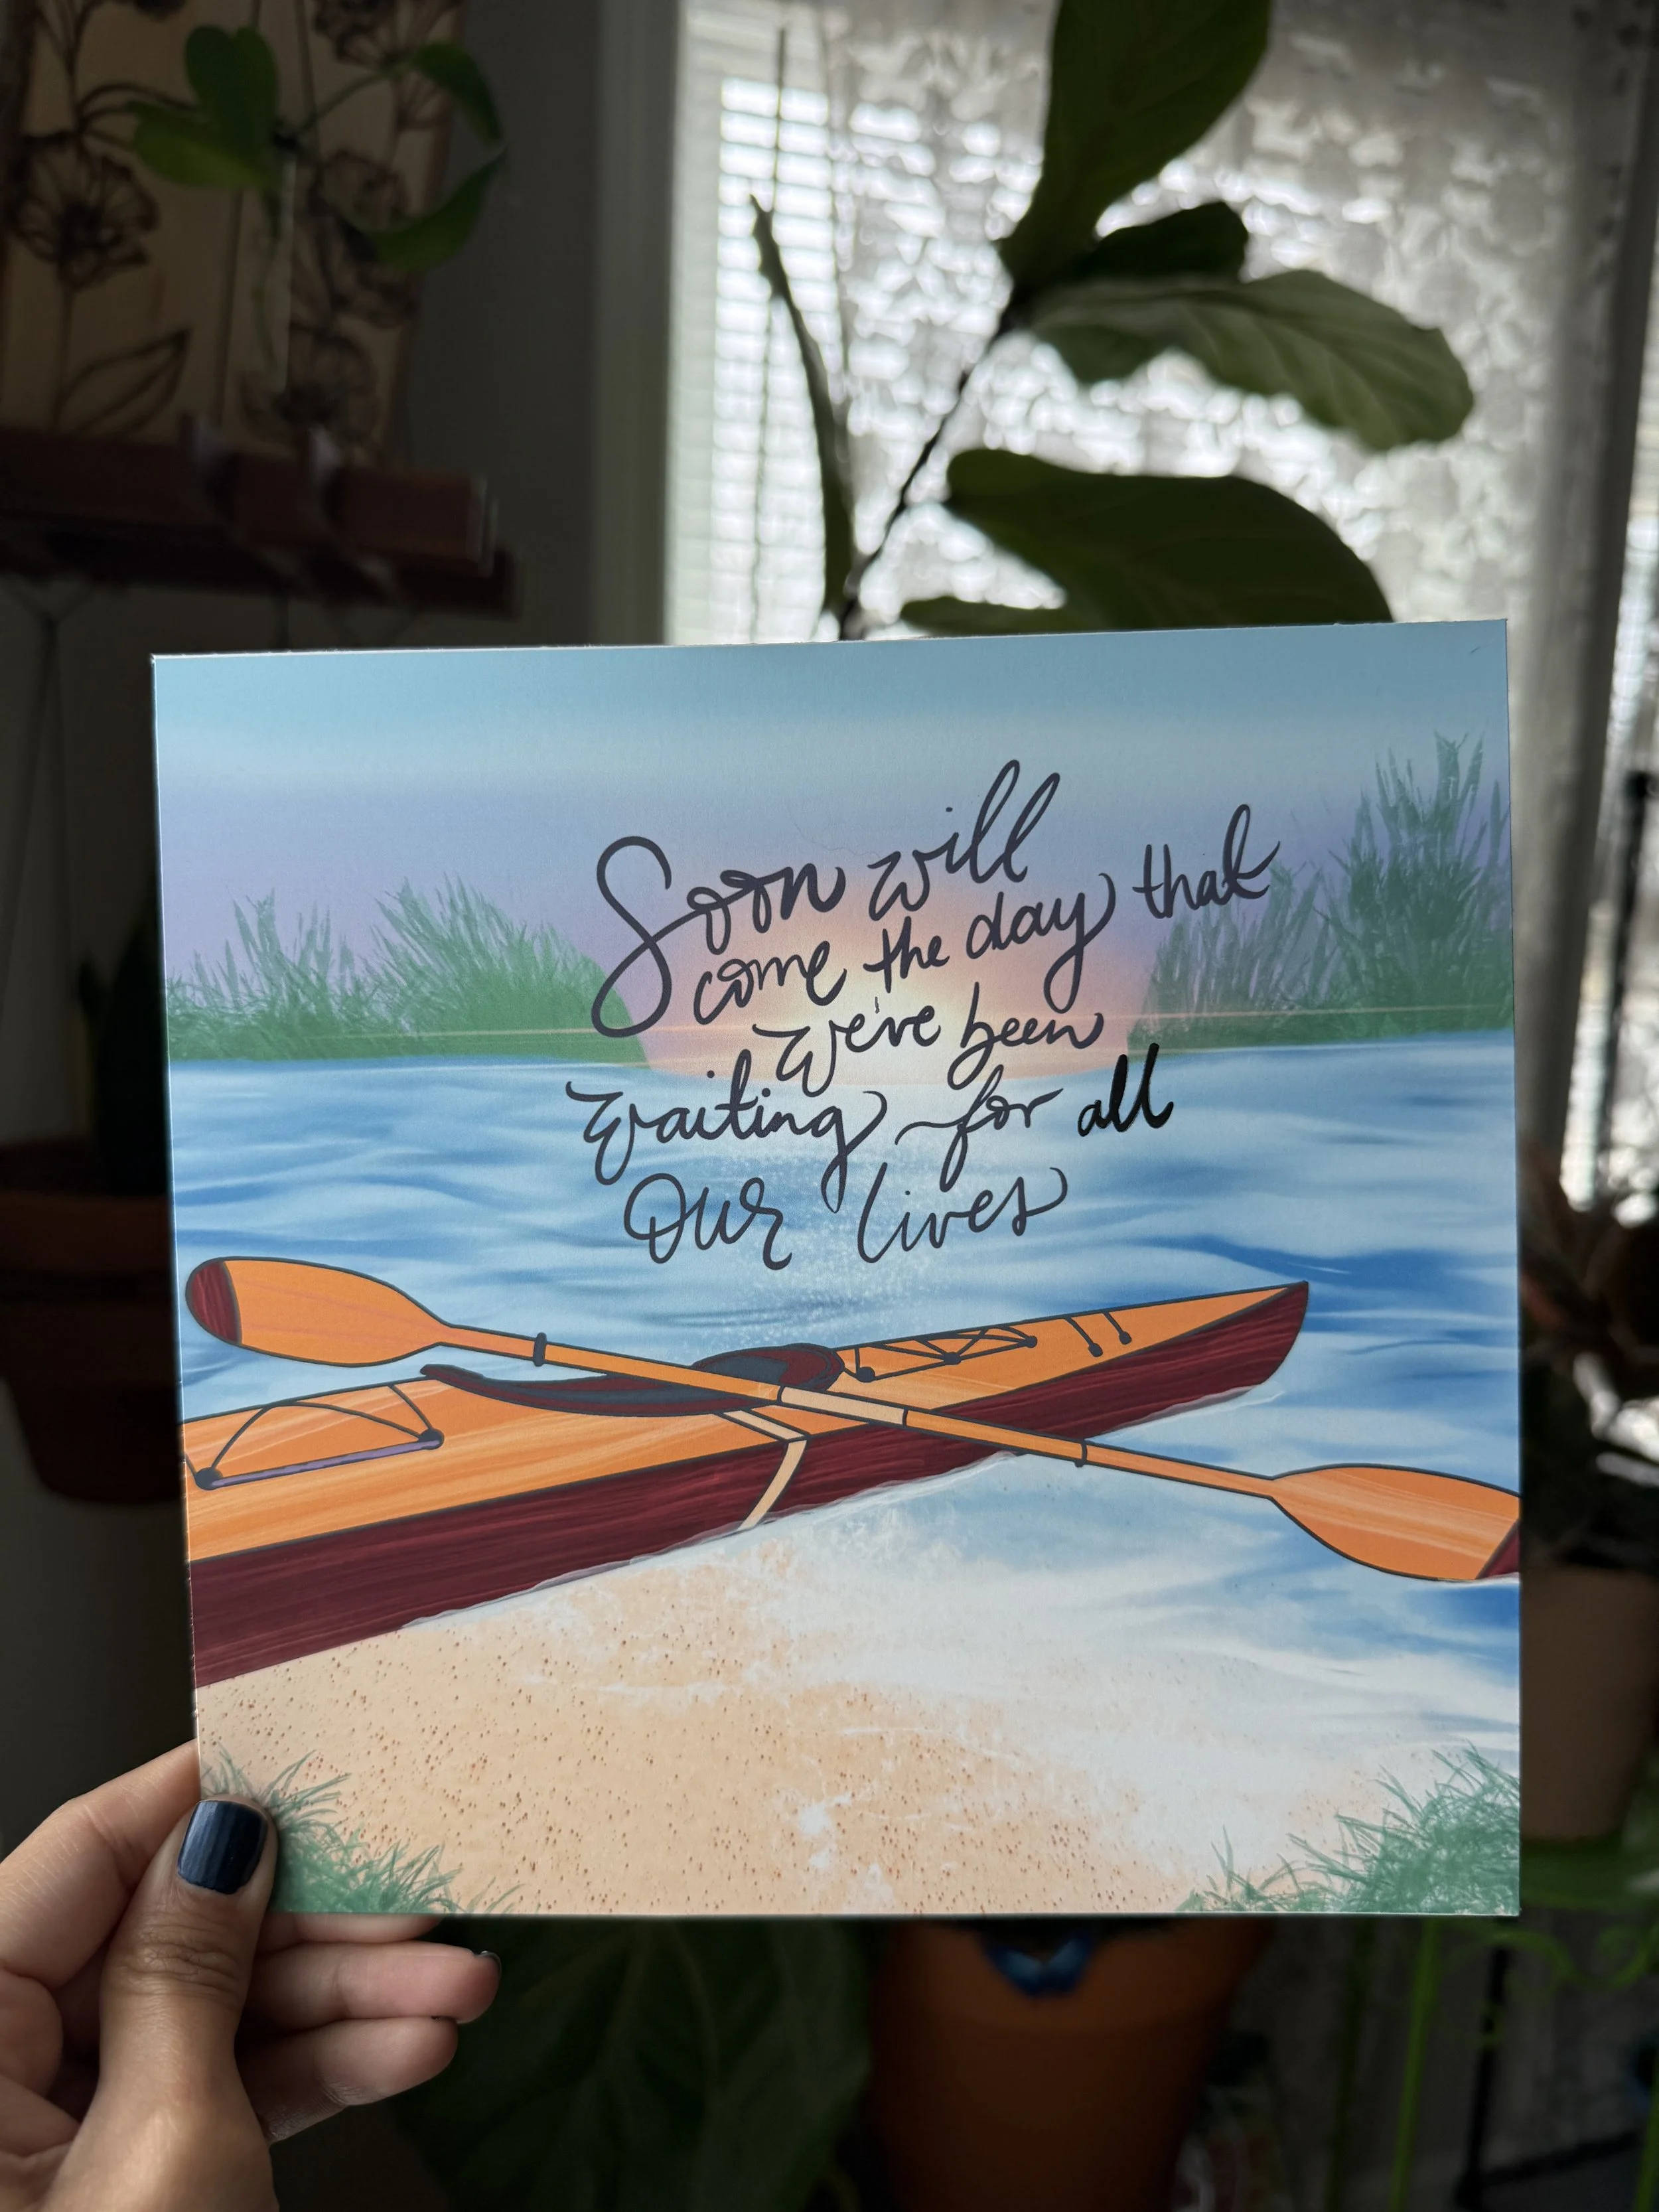 Soon will
come the day that
we've been
waiting for all
Our lives